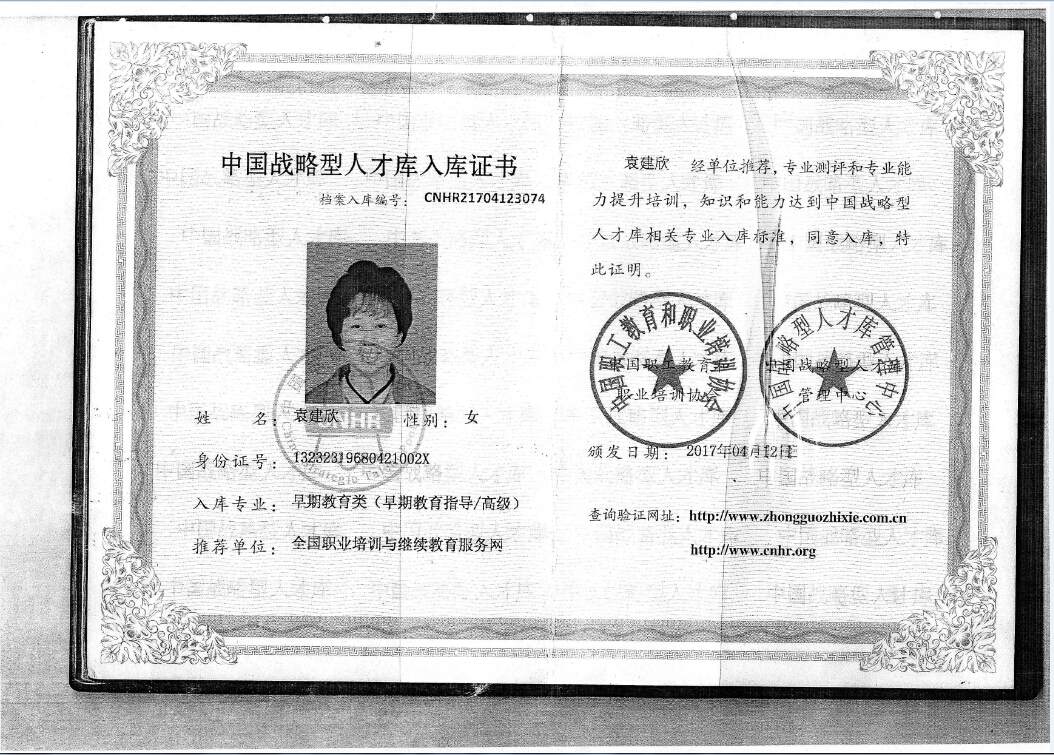 中国战略型人才库入库证书
档案入库编号： CNHR21704123074
CNHR
姓 名： 袁建欣 性别： 女
身份证号： 13232319680421002X
入库专业： 早期教育类（早期教育指导/高级）
推荐单位： 全国职业培训与继续教育服务网
袁建欣 经单位推荐，专业测评和专业能
力提升培训，知识和能力达到中国战略型
人才库相关专业入库标准，同意入库，特
此证明。
中国职工教育和职业培训协会
中国战略型人才库管理中心
中国职工教育和
职业培训协会
中国战略型人才库
管理中心
颁发日期： 2017年04月12日
查询验证网址：http://www.zhongguozhixie.com.cn
http://www.cnhr.org